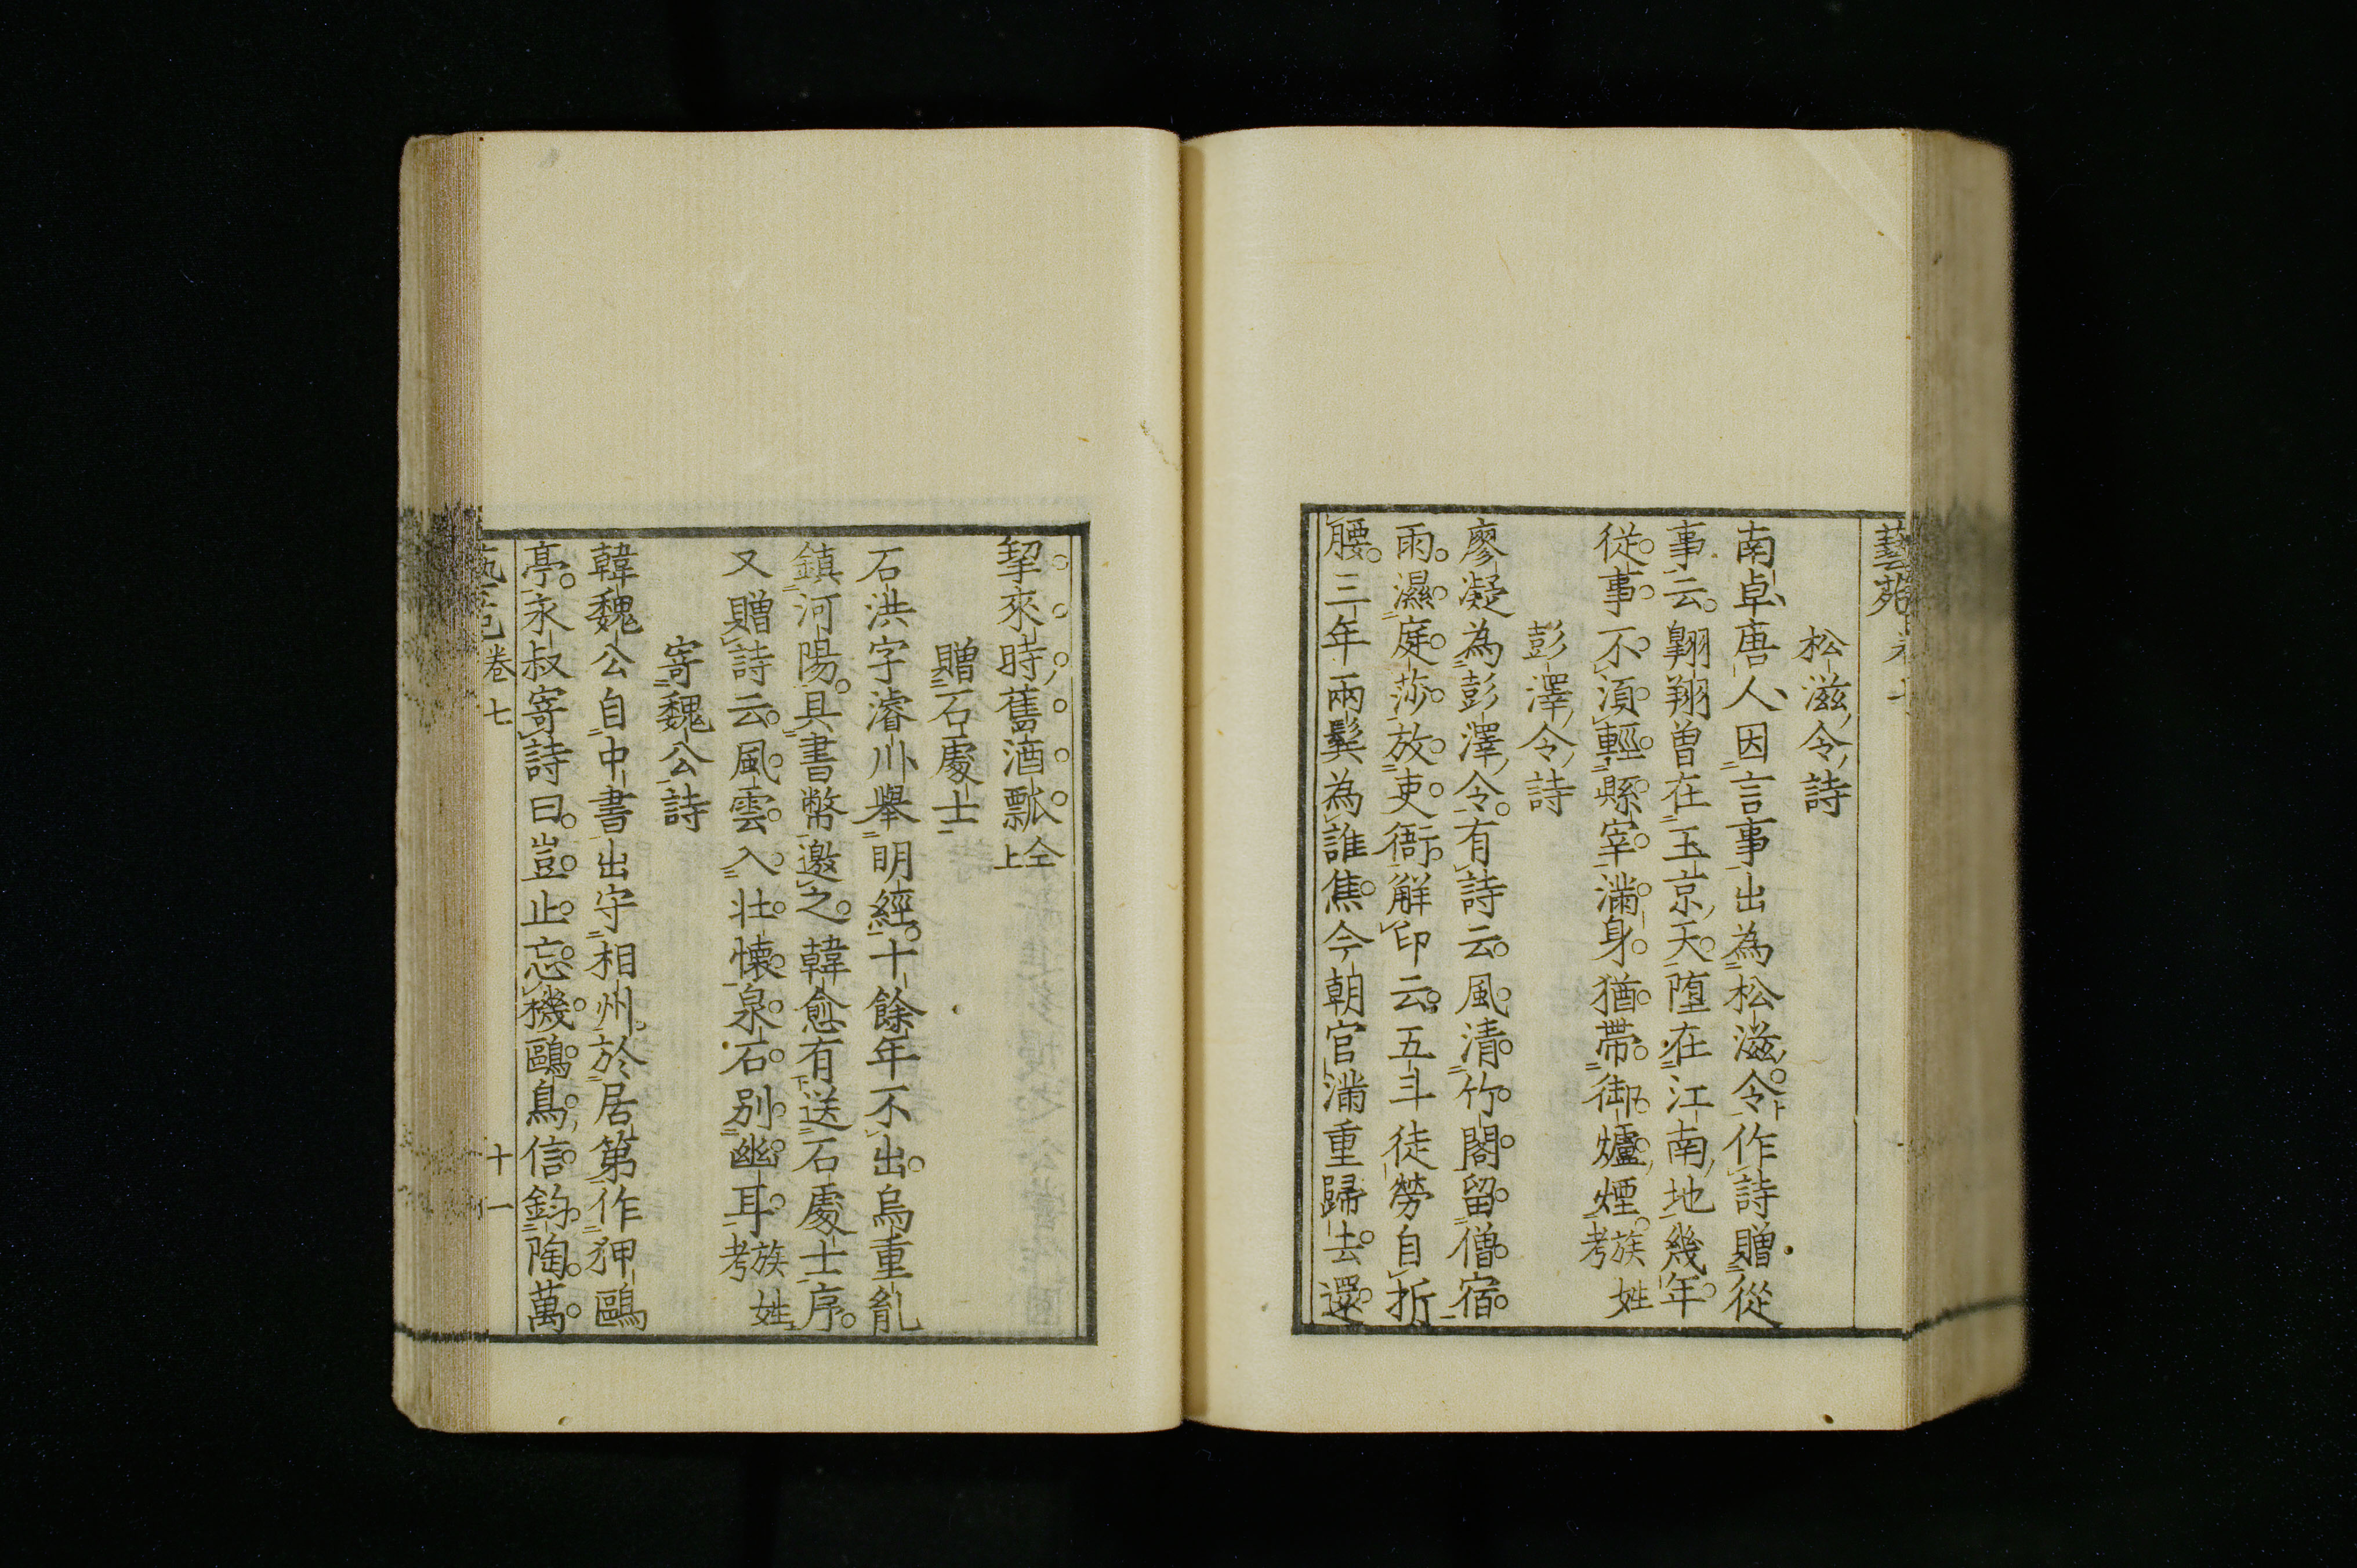 藝苑
松滋令詩
南卓唐人因言事出為松滋令作詩贈從
事云翺翔曽在玉京天堕在江南地幾年
從事不湏輕縣宰滿身猶帶御爐煙族姓考
彭澤令詩
廖凝為彭澤令有詩云風清竹閣留僧宿
雨濕庭莎放吏衙觧印云五斗徒勞自折
腰三年兩鬂為誰焦今朝官滿重歸去還
挈來時舊酒瓢仝上
贈石處士
石洪字濬川舉明經十餘年不出烏重胤
鎮河陽具書幣邀之韓愈有送石處士序
又贈詩云風雲入壮懐泉石別幽耳族姓考
寄魏公詩
韓魏公自中書出守相州於居第作狎鷗
亭永叔寄詩曰豈止忘機鷗鳥信鈞陶萬
卷七 十一